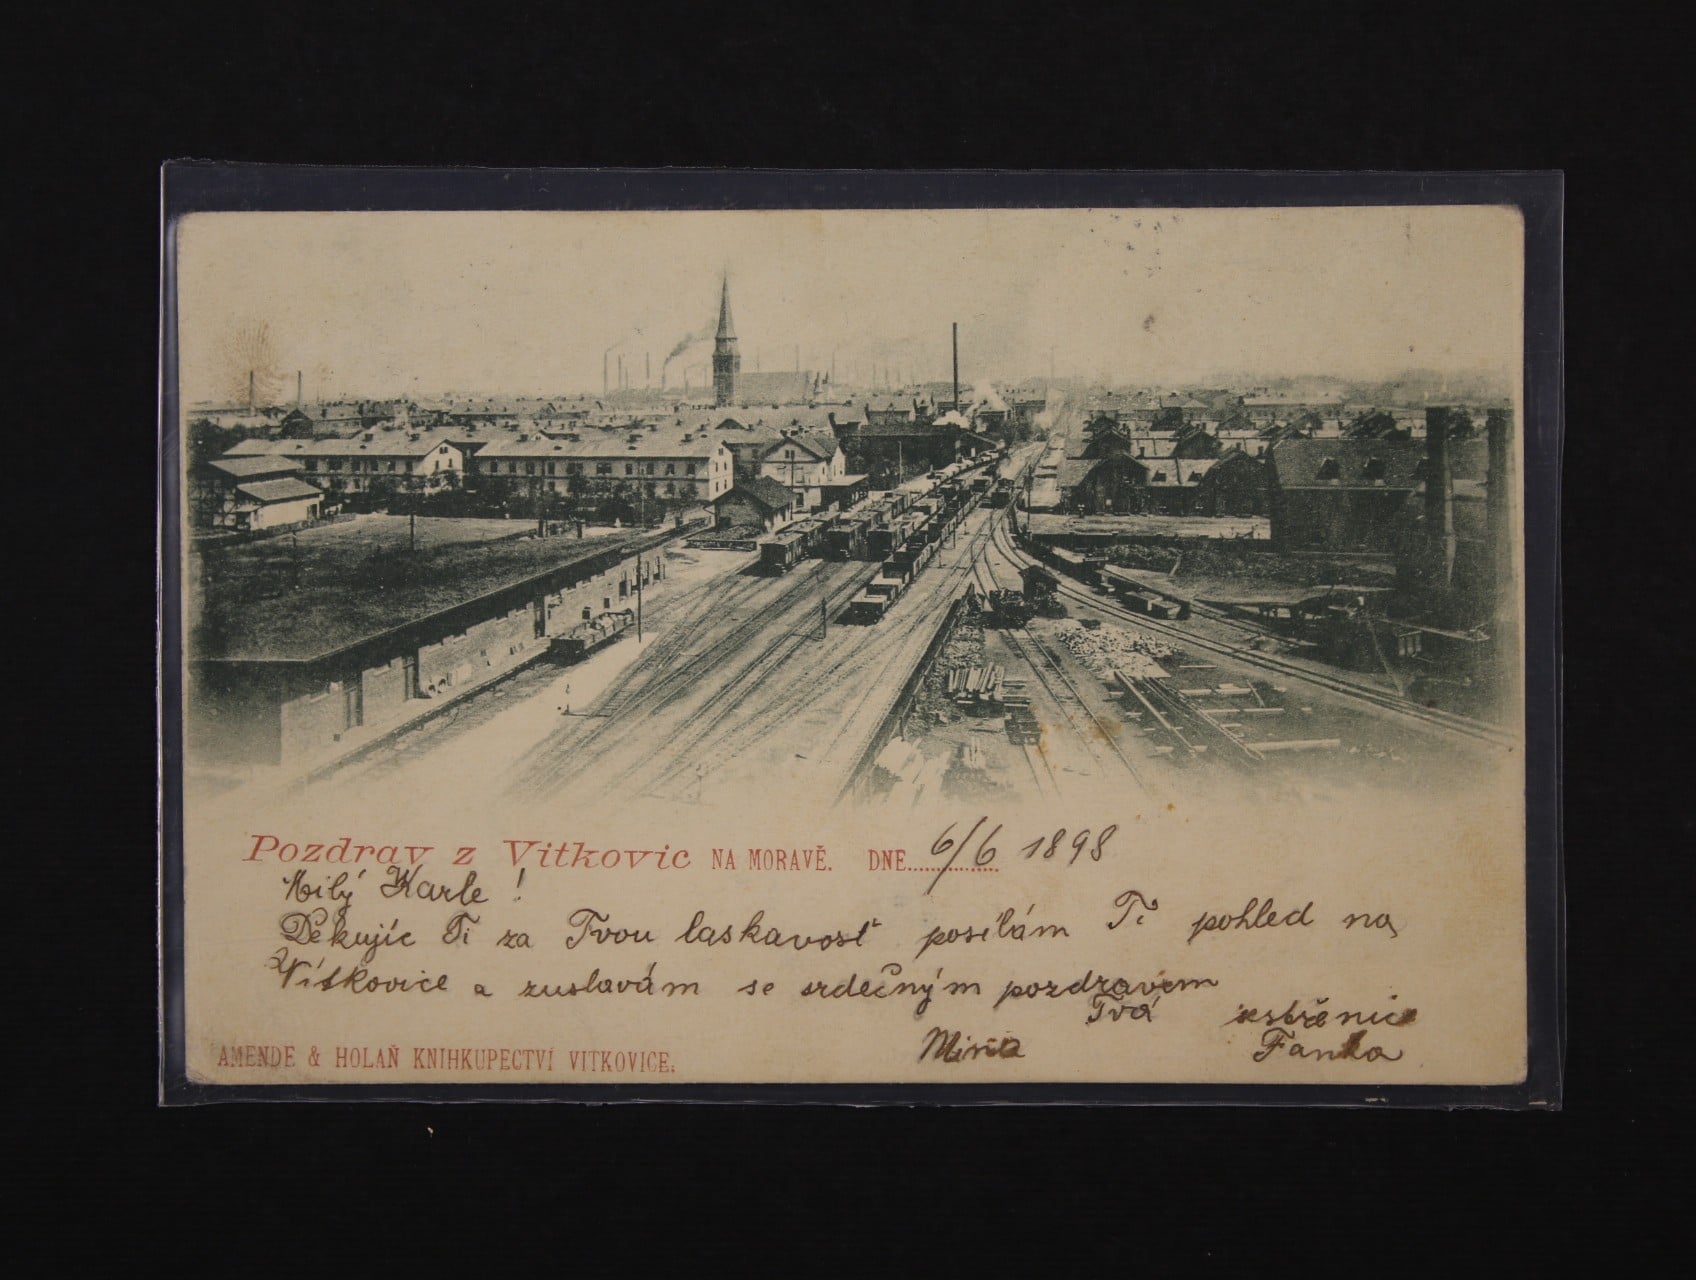 Pozdrav z Vitkovic NA MORAVĚ. DNE 6/6 1898
Milý Karle!
Děkujíc Ti za Tvou laskavosť posílám Ti pohled na
Vítkovice a zůstavám se srdečným pozdravem
Tvá sestřenice
Minia Fanka
AMENDE & HOLAŇ KNIHKUPECTVÍ VITKOVICE.